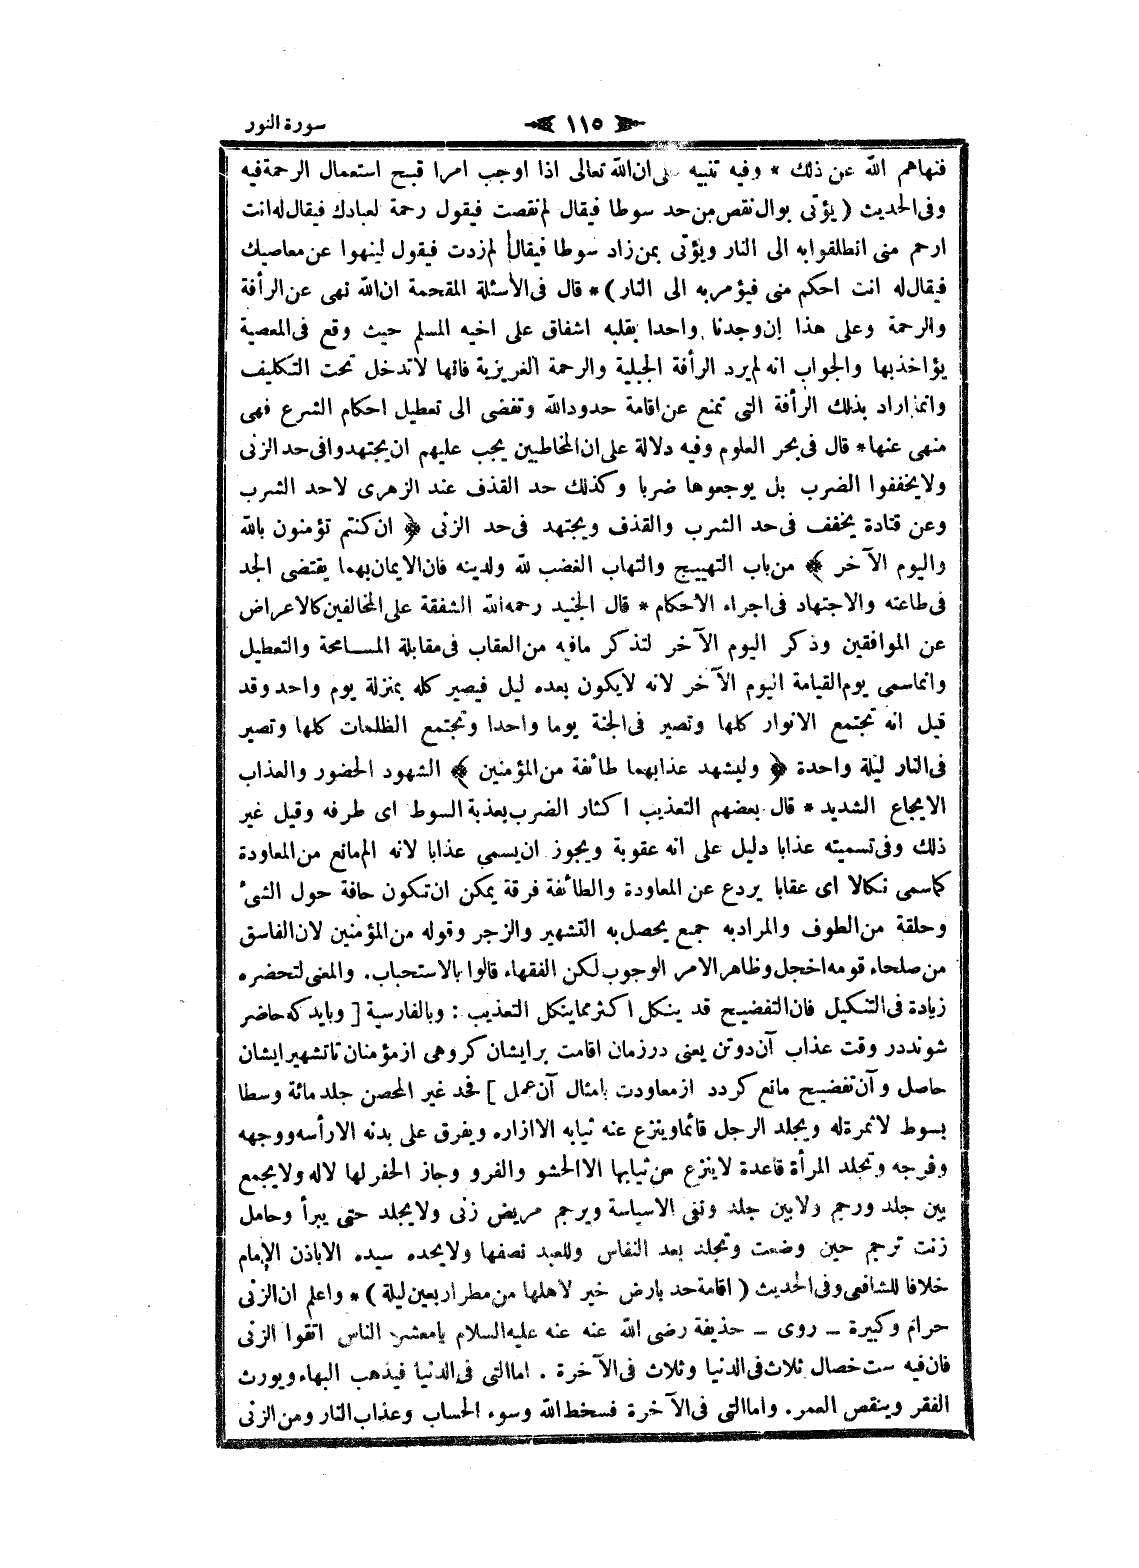 سورة النور
١١٥
فنهاهم الله عن ذلك * وفيه تنبيه على ان الله تعالى اذا اوجب امرا قبح استعمال الرحمة فيه
وفى الحديث ( يؤتى بوال نقص من حد سوطا فيقال لم نقصت فيقول رحمة لعبادك فيقال له انت
ارحم منى انطلقوا به الى النار ويؤتى بمن زاد سوطا فيقال لم زدت فيقول لينهوا عن معاصيك
فيقال له انت احكم منى فيؤمر به الى النار ) * قال فى الأسئلة المقحمة ان الله نهى عن الرأفة
والرحمة وعلى هذا إن وجدنا واحدا بقلبه اشفاق على اخيه المسلم حيث وقع فى المعصية
يؤاخذ بها والجواب انه لم يرد الرأفة الجبلية والرحمة الغريزية فانها لا تدخل تحت التكليف
وانما اراد بذلك الرأفة التى تمنع عن اقامة حدود الله وتفضى الى تعطيل احكام الشرع فهى
منهى عنها * قال فى بحر العلوم وفيه دلالة على ان المخاطبين يجب عليهم ان يجتهدوا فى حد الزنى
ولا يخففوا الضرب بل يوجعوها ضربا وكذلك حد القذف عند الزهرى لا حد الشرب
وعن قتادة يخفف فى حد الشرب والقذف ويجتهد فى حد الزنى ﴿ ان كنتم تؤمنون بالله
واليوم الآخر ﴾ من باب التهييج والتهاب الغضب لله ولدينه فان الايمان بهما يقتضى الجد
فى طاعته والاجتهاد فى اجراء الاحكام * قال الجنيد رحمه الله الشفقة على المخالفين كالاعراض
عن الموافقين وذكر اليوم الآخر لتذكر ما فيه من العقاب فى مقابلة المسامحة والتعطيل
وانما سمى يوم القيامة اليوم الآخر لانه لا يكون بعده ليل فيصير كله بمنزلة يوم واحد وقد
قيل انه تجتمع الانوار كلها وتصير فى الجنة يوما واحدا وتجتمع الظلمات كلها وتصير
فى النار ليلة واحدة ﴿ وليشهد عذابهما طائفة من المؤمنين ﴾ الشهود الحضور والعذاب
الايجاع الشديد * قال بعضهم التعذيب اكثار الضرب بعذبة السوط اى طرفه وقيل غير
ذلك وفى تسميته عذابا دليل على انه عقوبة ويجوز ان يسمى عذابا لانه الم مانع من المعاودة
كما سمى نكالا اى عقابا يردع عن المعاودة والطائفة فرقة يمكن ان تكون حافة حول الشئ
وحلقة من الطوف والمراد به جمع يحصل به التشهير والزجر وقوله من المؤمنين لان الفاسق
من صلحاء قومه اخجل وظاهر الامر الوجوب لكن الفقهاء قالوا بالاستحباب. والمعنى لتحضره
زيادة فى التنكيل فان التفضيح قد ينكل اكثر مما ينكل التعذيب : وبالفارسية [ وبايد كه حاضر
شوند در وقت عذاب آن دوتن يعنى در زمان اقامت بر ايشان كروهى از مؤمنان تا تشهير ايشان
حاصل و آن تفضيح مانع كردد از معاودت بامثال آن عمل ] فحد غير المحصن جلد مائة وسطا
بسوط لا ثمرة له ويجلد الرجل قائما وينزع عنه ثيابه الا ازاره ويفرق على بدنه الا رأسه ووجهه
وفرجه وتجلد المرأة قاعدة لا ينزع من ثيابها الا الحشو والفرو وجاز الحفر لها لا له ولا يجمع
بين جلد ورجم ولا بين جلد ونفى الا سياسة ويرجم مريض زنى ولا يجلد حتى يبرأ وحامل
زنت ترجم حين وضعت وتجلد بعد النفاس وللعبد نصفها ولا يحده سيده الا باذن الإمام
خلافا للشافعى وفى الحديث ( اقامة حد بارض خير لاهلها من مطر اربعين ليلة ) * واعلم ان الزنى
حرام وكبيرة ــ روى ــ حذيفة رضى الله عنه عنه عليه السلام يا معشر الناس اتقوا الزنى
فان فيه ست خصال ثلاث فى الدنيا وثلاث فى الآخرة . اما التى فى الدنيا فيذهب البهاء ويورث
الفقر وينقص العمر. واما التى فى الآخرة فسخط الله وسوء الحساب وعذاب النار ومن الزنى